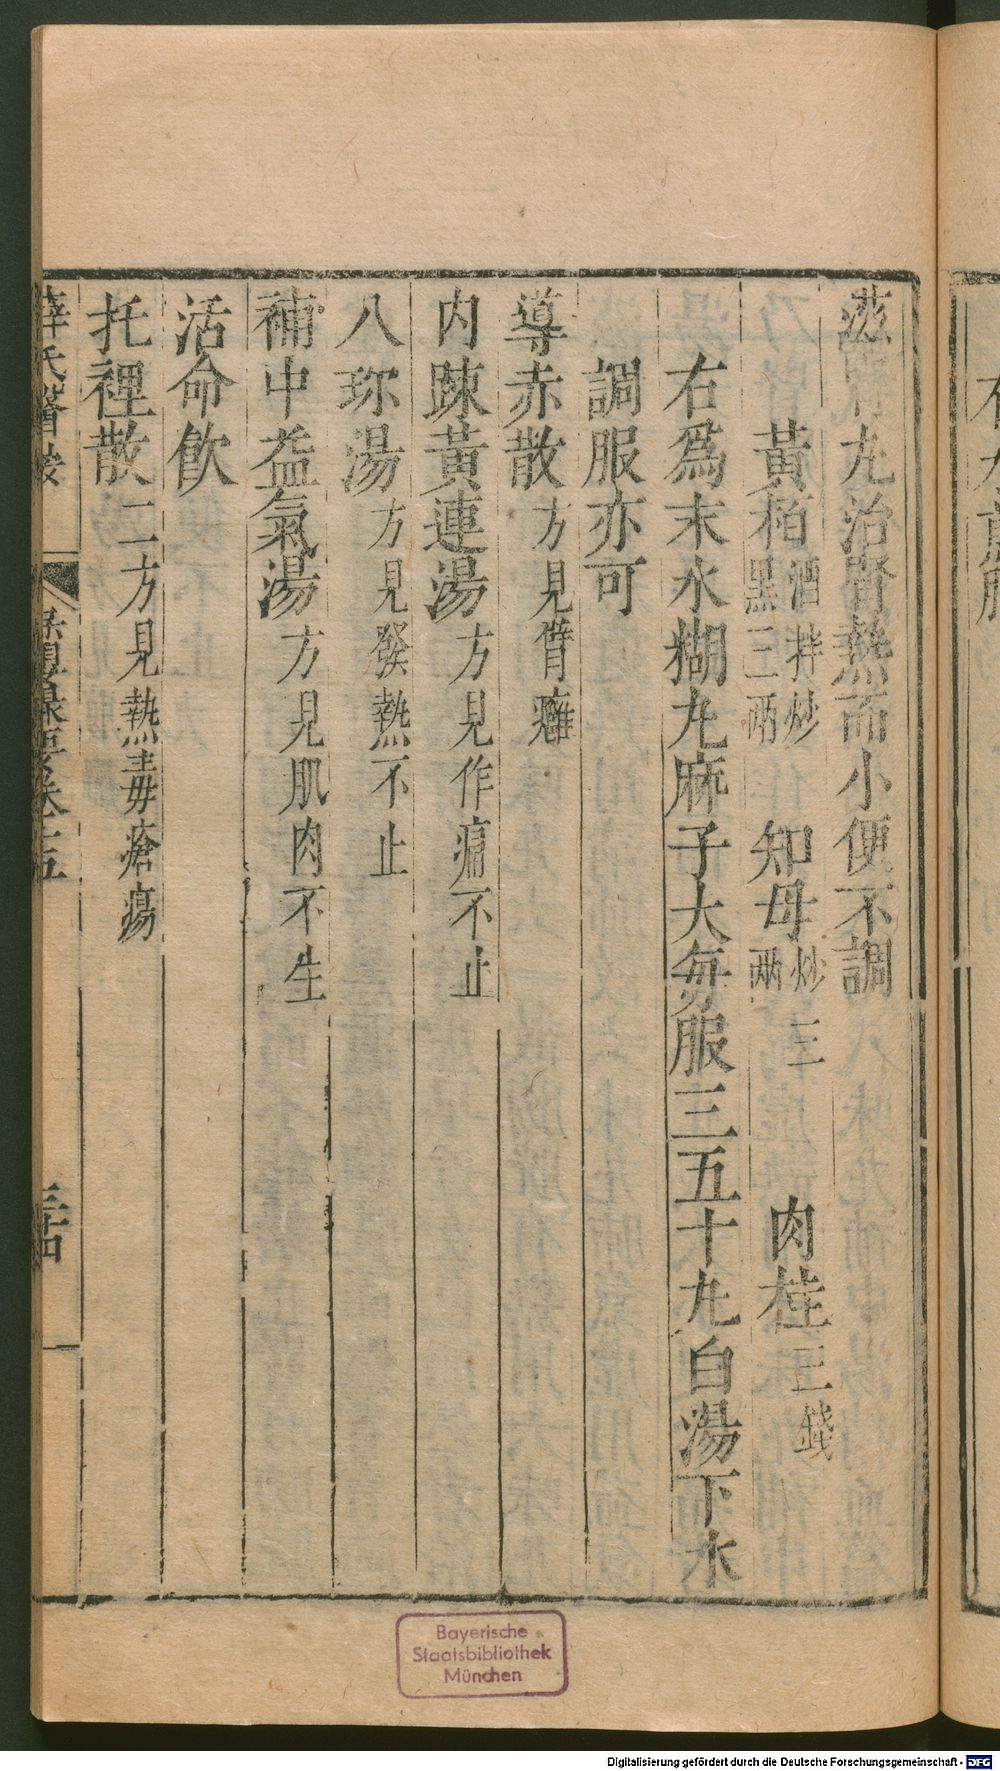 滋腎丸治腎熱而小便不調
黃栢酒拌炒黑三兩 知母炒三兩 肉桂三錢
右爲末水糊丸麻子大每服三五十丸白湯下水
調服亦可
導赤散方見臂癰
內疎黃連湯方見作痛不止
八珎湯方見發熱不止
補中益氣湯方見肌肉不生
活命飲
托裡散二方見熱毒瘡瘍
薛氏醫
卷十五
三十四
Bayerische
Staatsbibliothek
München
Digitalisierung gefördert durch die Deutsche Forschungsgemeinschaft - DFG